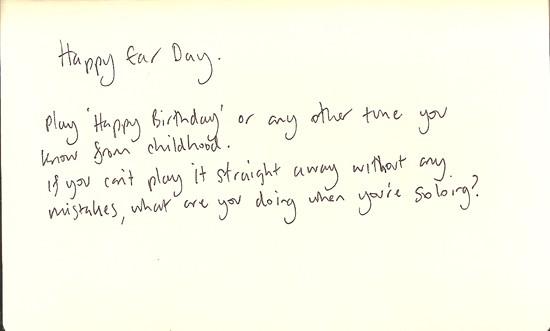 Happy Ear Day.
Play 'Happy Birthday' or any other tune you
know from childhood.
if you can't play it straight away without any
mistakes, what are you doing when you're soloing?